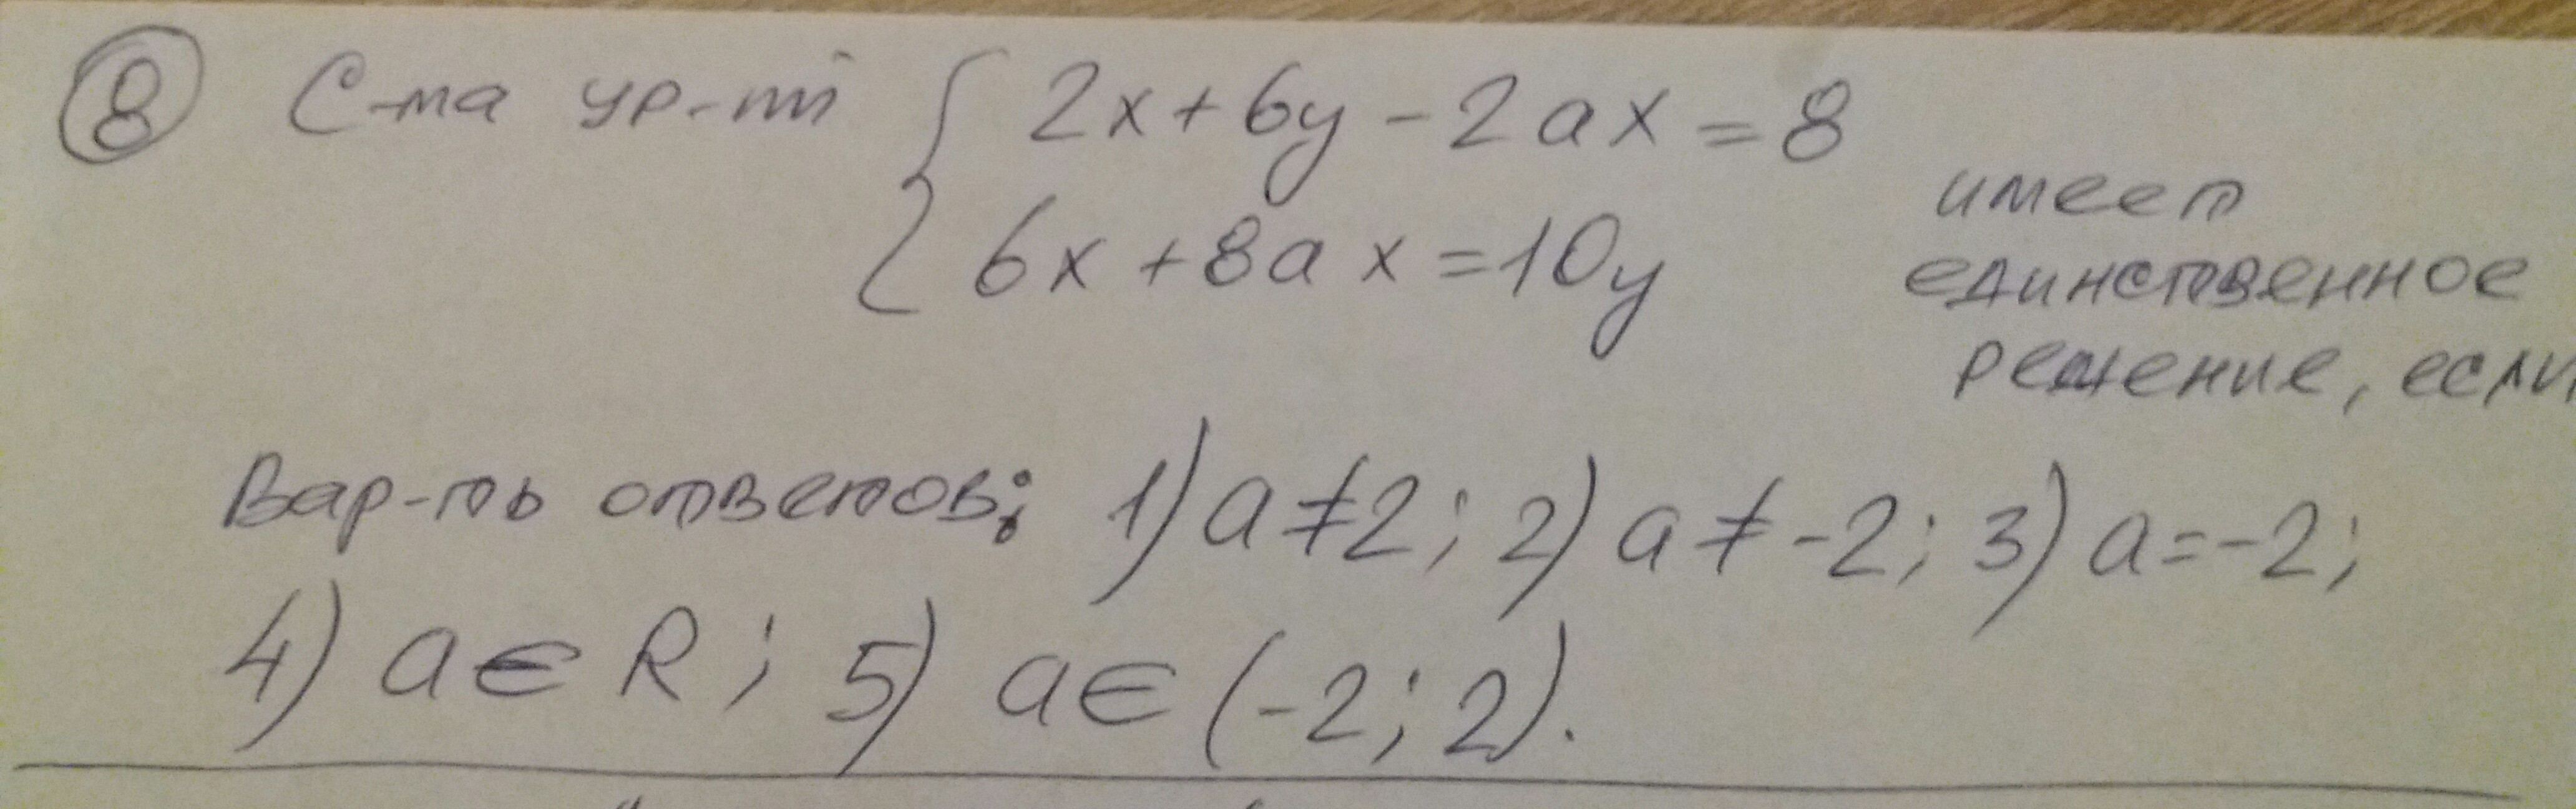 8 С-ма ур-ий { 2x + 6y - 2ax = 8
6x + 8ax = 10y
имеет
единственное
решение, если
Вар-ты ответов: 1) a ≠ 2; 2) a ≠ -2; 3) a = -2;
4) a ∈ R; 5) a ∈ (-2; 2).